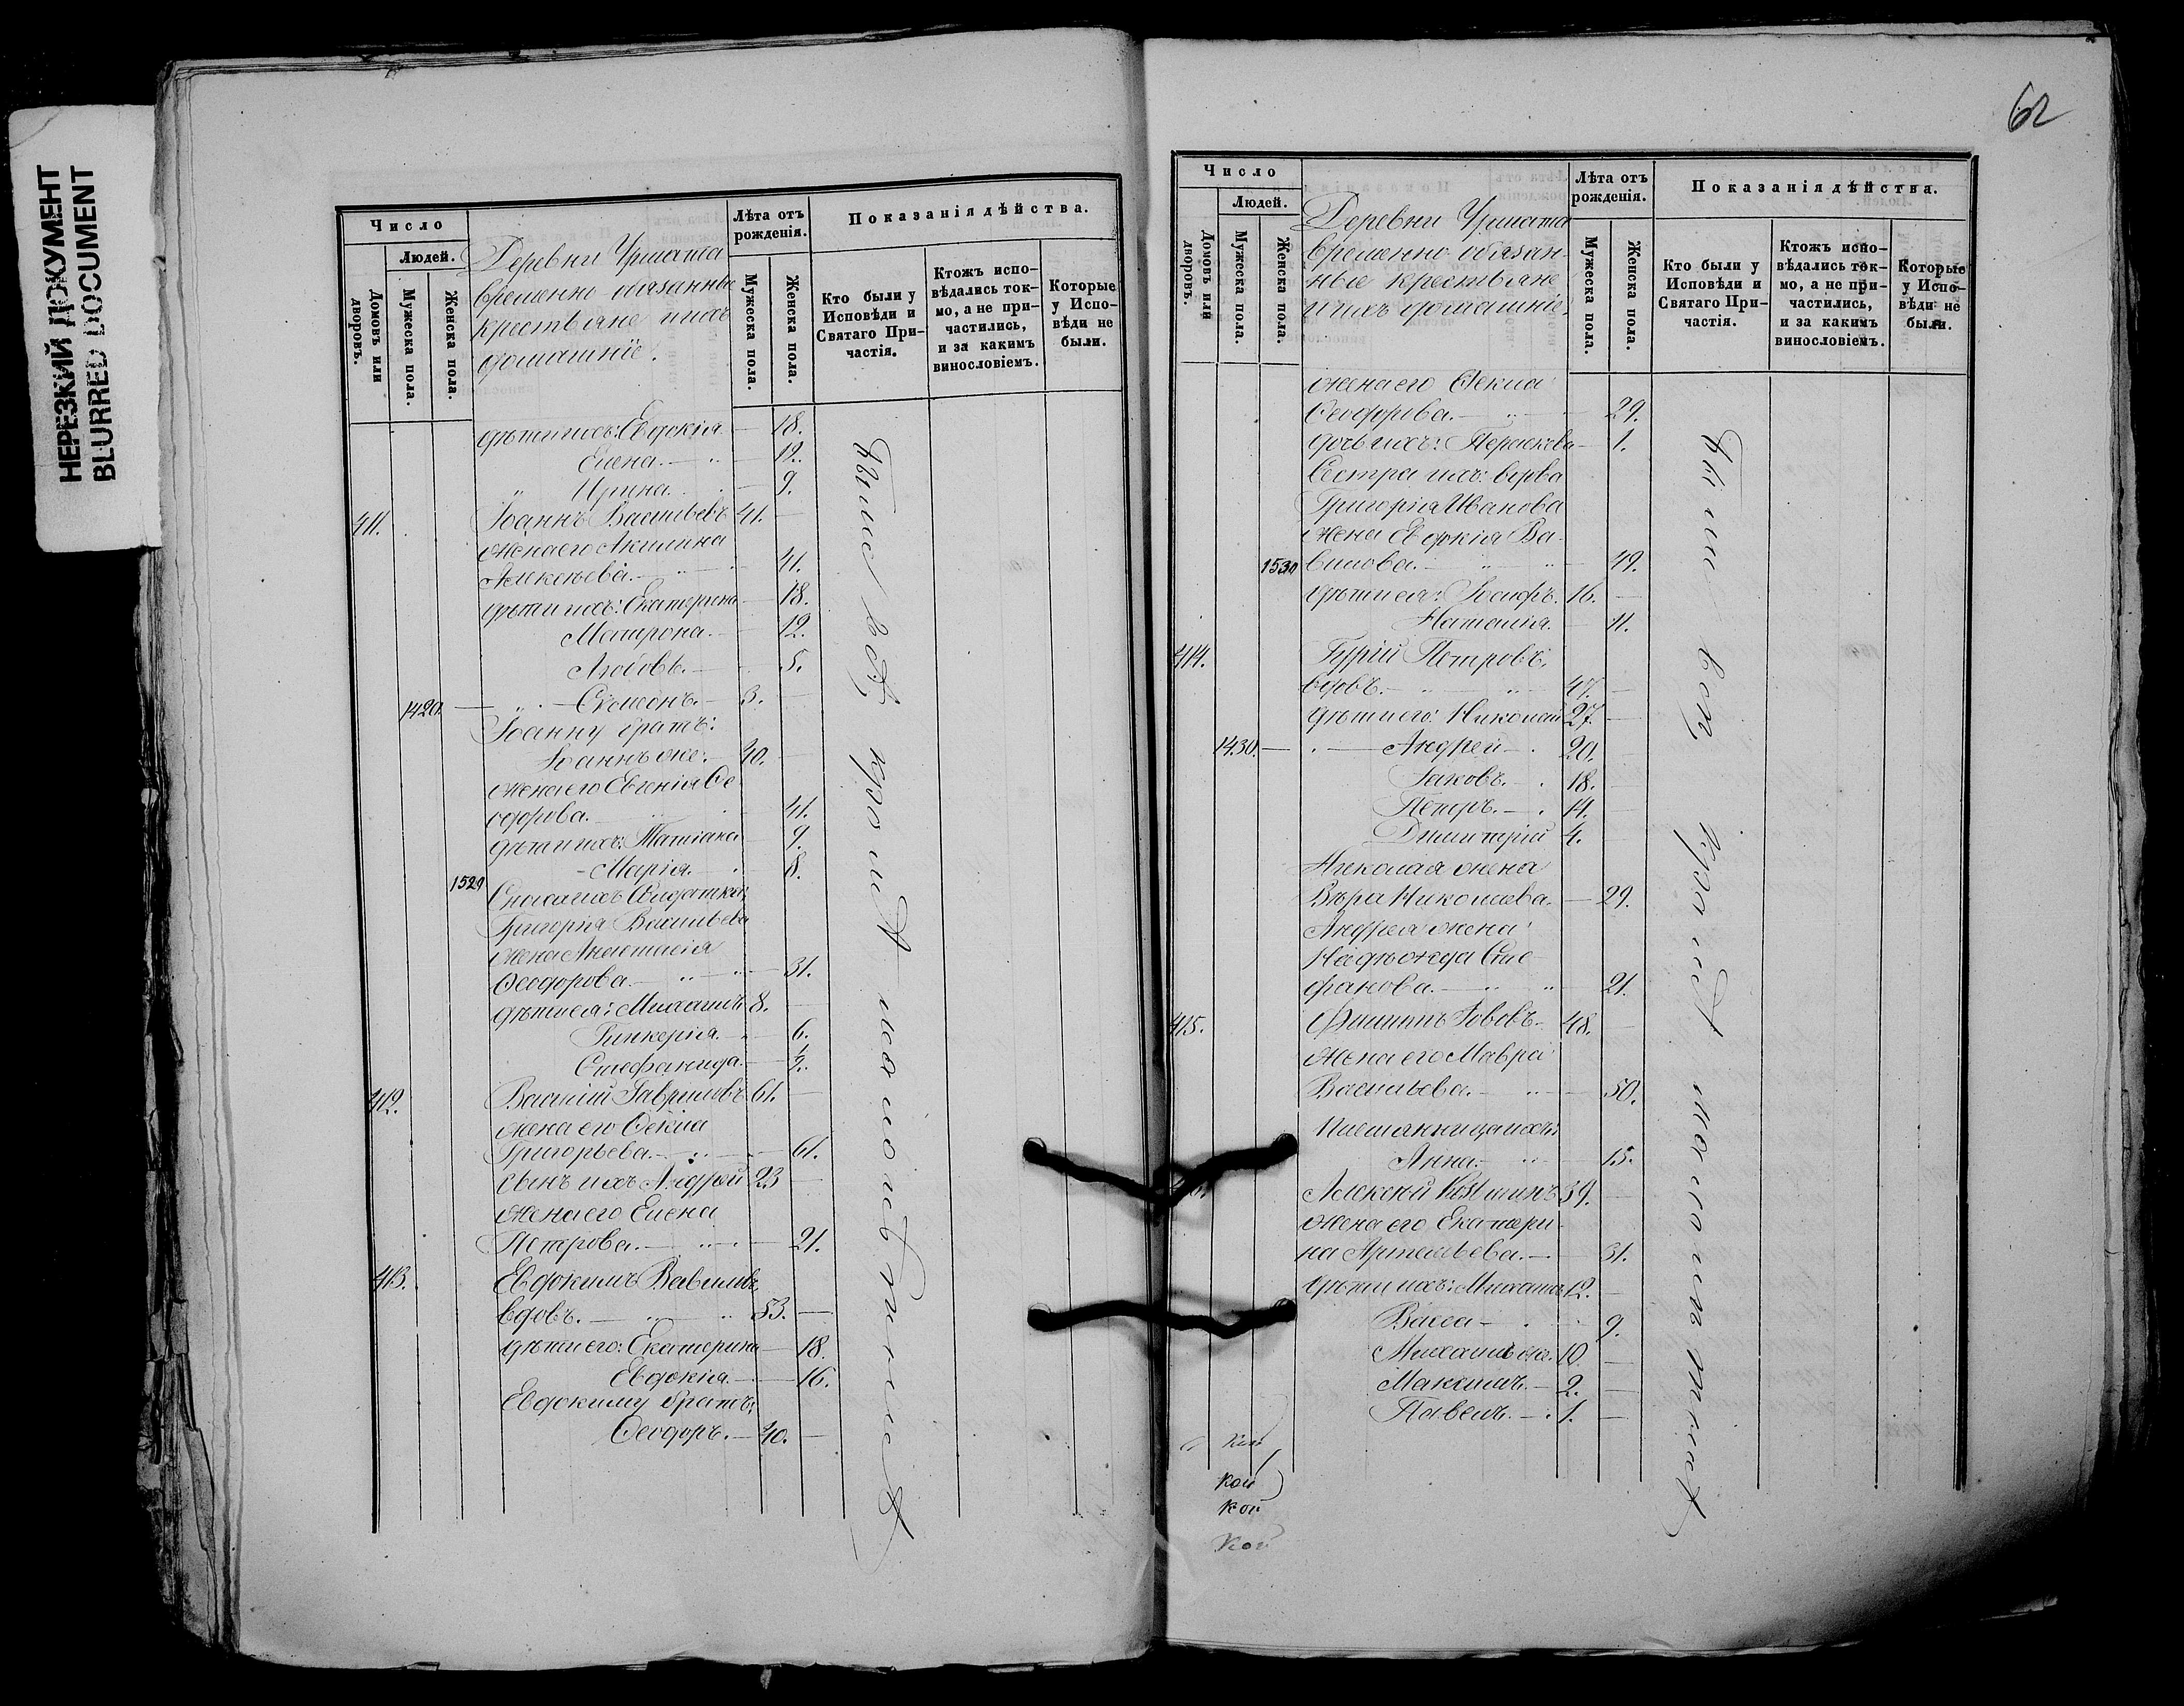 НЕРЕЗКИЙ ДОКУМЕНТ
BLURRED DOCUMENT
Число
Людей.
Домовъ или дворовъ.
Мужеска пола.
Женска пола.
Деревни
временно обязанные
крестьяне и ихъ
домашніе.
Лѣта отъ рожденія.
Мужеска пола.
Женска пола.
Показанія дѣйства.
Кто были у Исповѣди и Святаго Причастія.
Ктожъ исповѣдались токмо, а не причастились, и за какимъ винословіемъ.
Которые у Исповѣди не были.
дѣти ихъ: Евдокія 18.
Елена. 12.
Ирина. 9.
411. Іоаннъ Васильевъ 41.
жена его Акилина
Алексѣева. 41.
дѣти ихъ: Екатерина 18.
Матрона. 12.
Любовь. 5.
1420 Симеонъ. 3.
Іоанну братъ:
Іоаннъ же. 40.
жена его Евгенія Ѳе-
одорова. 41.
дѣти ихъ: Татіана 9.
1520 Марія. 8.
Сноха ихъ солдатка,
Григорія Васильева
жена Анастасія
Ѳеодорова. 31.
дѣти ея: Михаилъ 8.
Гликерія. 6.
Стефанида. 1/2.
412. Василій Гавриловъ 61.
жена его Ѳекла
Григорьева. 61.
сынъ ихъ Андрей 23
жена его Елена
Петрова. 21.
413. Евдокимъ Вавиловъ,
вдовъ. 53.
дѣти его: Екатерина 18.
Евдокія. 16.
Евдокиму братъ:
Ѳеодоръ. 40.
62
Число
Людей.
Домовъ или дворовъ.
Мужеска пола.
Женска пола.
Деревни
временно обязан-
ные крестьяне
и ихъ домашніе.
Лѣта отъ рожденія.
Мужеска пола.
Женска пола.
Показанія дѣйства.
Кто были у Исповѣди и Святаго Причастія.
Ктожъ исповѣдались токмо, а не причастились, и за какимъ винословіемъ.
Которые у Исповѣди не были.
жена его Ѳекла
Ѳеодорова. 29.
дочь ихъ: Параскева 1.
Сестра ихъ: вдова
Григорія Иванова
жена Евдокія Ва-
1530 вилова. 49.
дѣти ея: Іосифъ. 16.
Наталія. 11.
414. Гурій Петровъ,
вдовъ. 47.
дѣти его: Николай 27.
1430. Андрей 20.
Іаковъ. 18.
Петръ. 14.
Димитрій 4.
Николая жена
Вѣра Николаева. 29.
Андрея жена
Надежда Сте-
фанова. 21.
415. Филиппъ Іововъ. 48.
жена его Мавра
Васильева. 50.
племянница ихъ:
Анна. 15.
Алексѣй 39.
жена его Екатери-
на Артемьева. 31.
дѣти ихъ: Михаилъ 12.
Васса 9.
Михаилъ же. 10.
Максимъ. 2.
Павелъ. 1.
кой
кой
кой